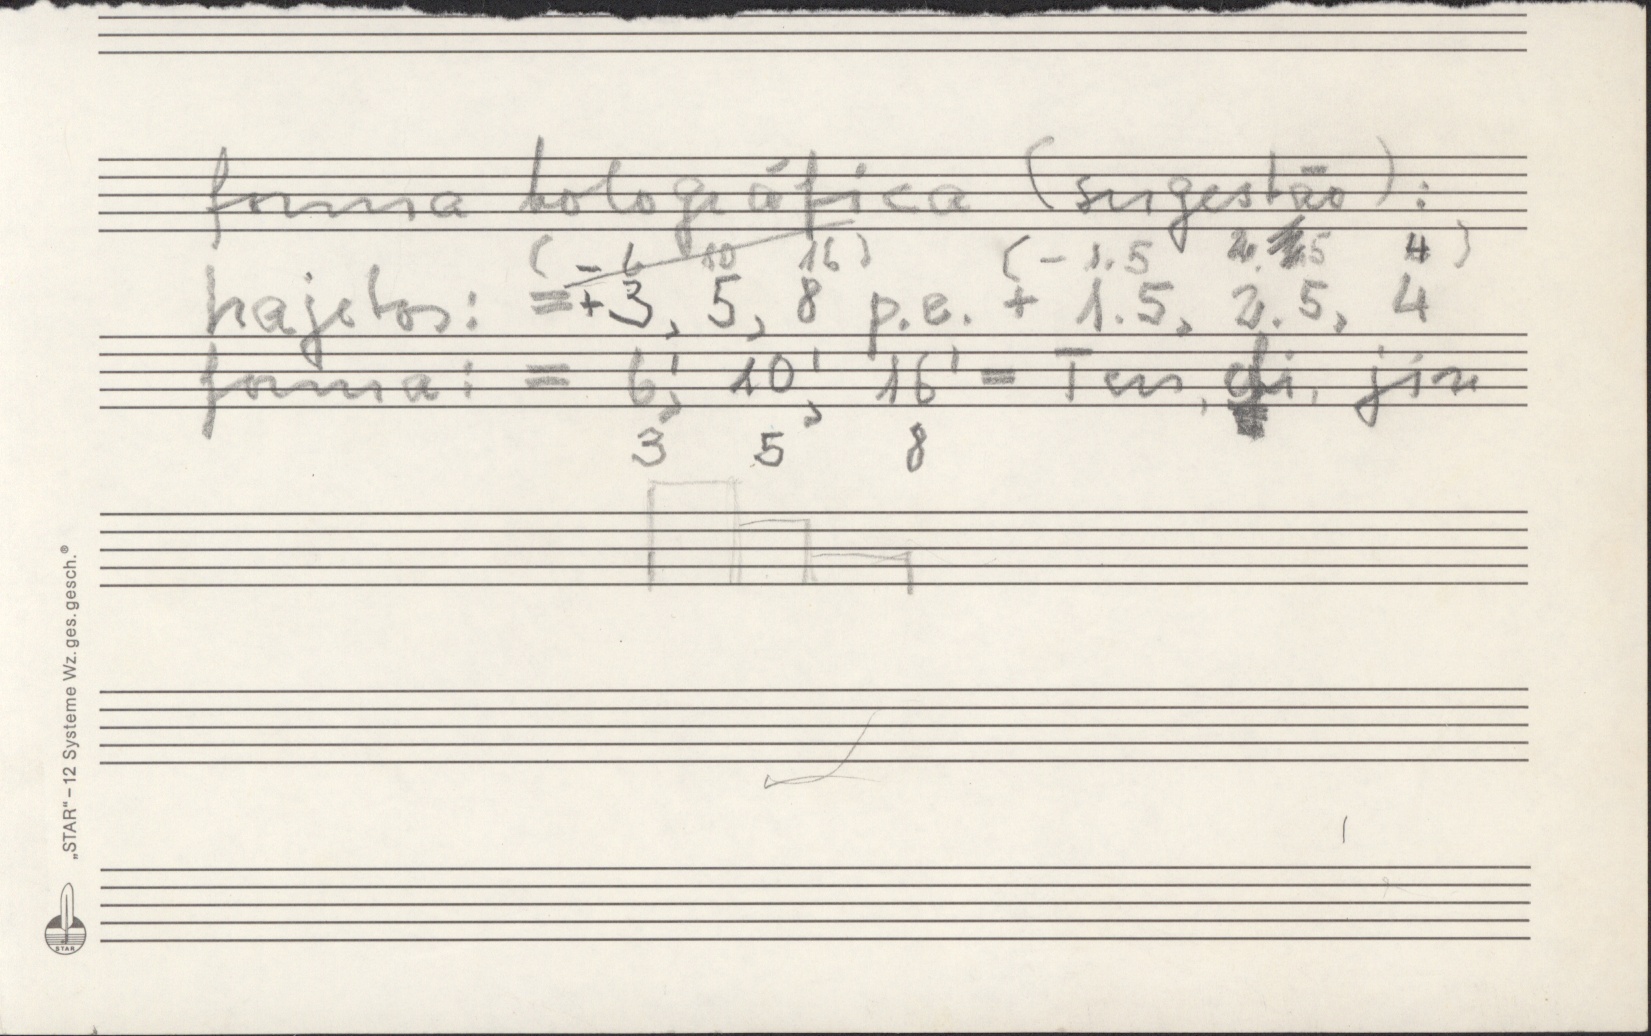 forma holográfica (sugestão):
(- 6 10 16) (- 1.5 2.5 4)
trajetos: = + 3, 5, 8 p.e. + 1.5, 2.5, 4
forma: = 6', 10', 16' = Ten, chi, jin
3 5 8
„STAR“ – 12 Systeme Wz. ges. gesch.®
STAR